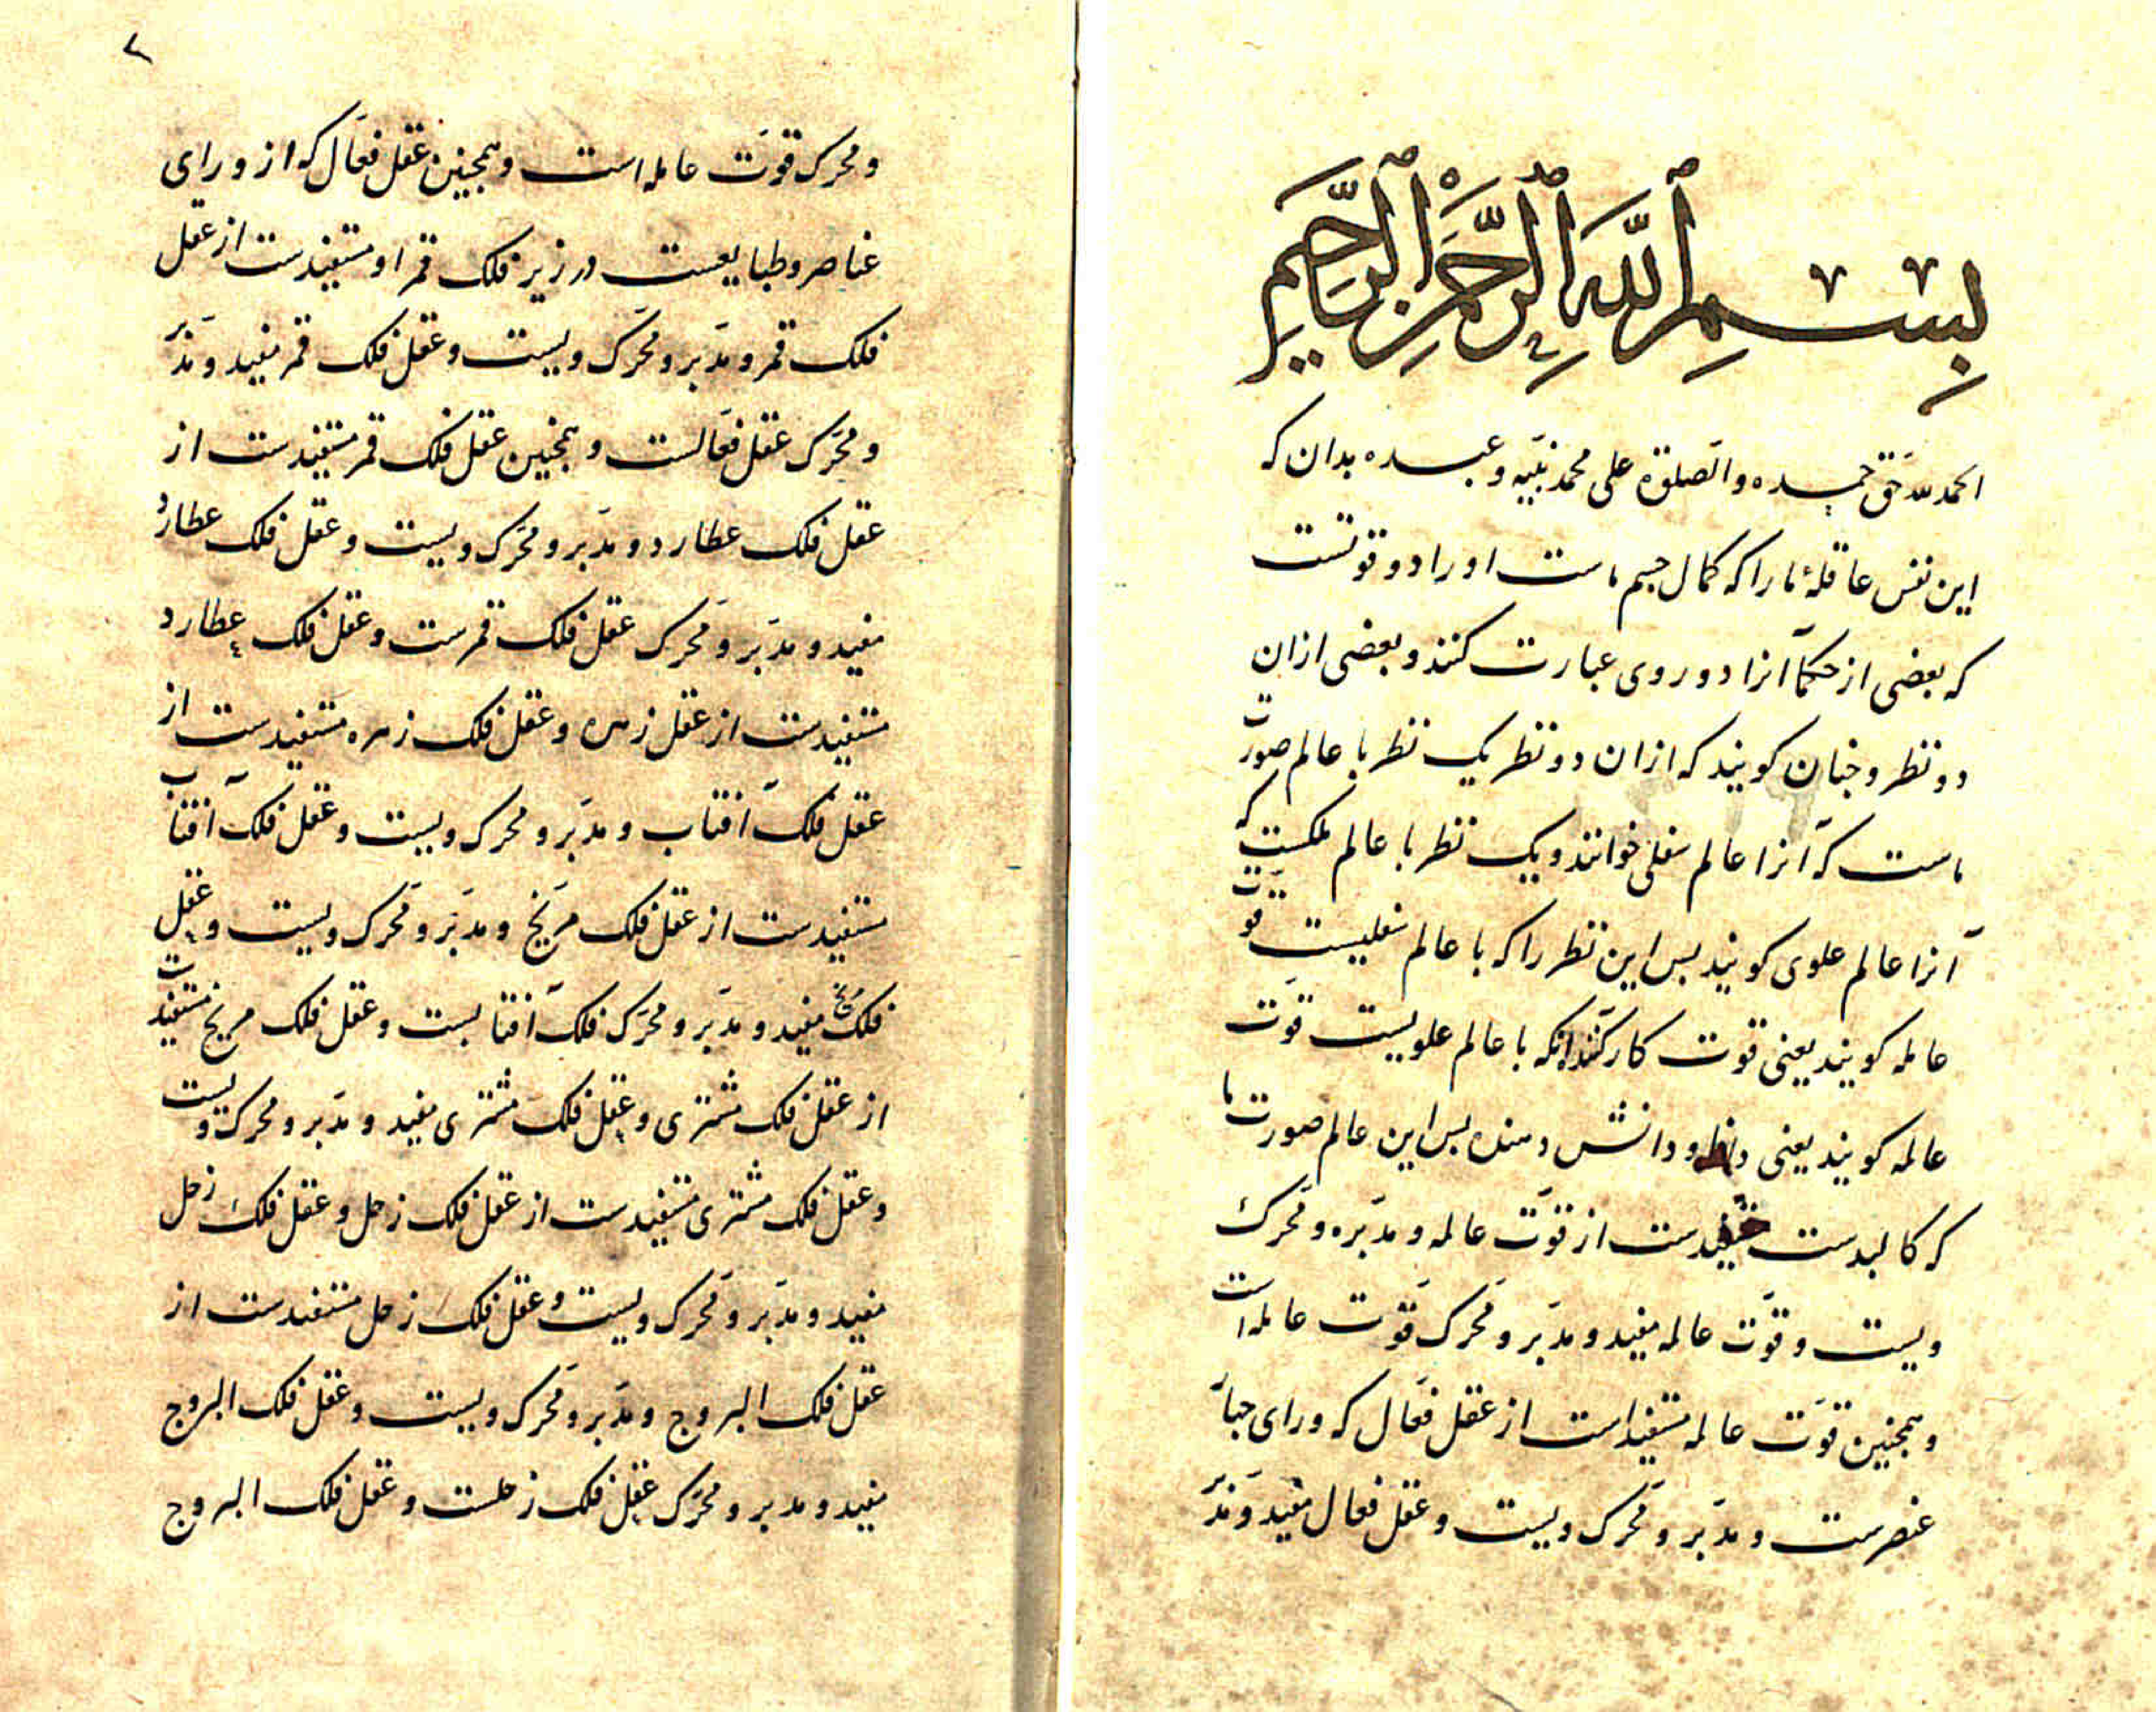 بسم الله الرحمن الرحیم
الحمد لله حق حمده والصلوة علی محمد نبیه وعبده بدان که
این نفس عاقلهٔ ما را که کمال جسم ماست او را دو قوتست
که بعضی از حکما آنرا دو روی عبارت کنند و بعضی ازان
دو نظر و چنان کویند که ازان دو نظر یک نظر با عالم صورت
ماست که آنرا عالم سفلی خوانند و یک نظر با عالم ملکست که
آنرا عالم علوی کویند بس این نظر را که با عالم سفلیست قوّت
عامله کویند یعنی قوت کارکننده آنکه با عالم علویست قوّت
عالمه کویند یعنی و دانش دهنده بس این عالم صورت ما
که کالبدست مستفیدست از قوّت عالمه و مدبّره و محرّک
ویست و قوّت عالمه مفید و مدبّر و محرّک قوّت عامله است
و همچنین قوّت عالمه مستفید است از عقل فعّال که ورای جهات
عنصرست و مدبّر و محرّک ویست و عقل فعال مفید و مدبّر
۲
و محرک قوّت عامله است و همچنین عقل فعّال که از ورای
عناصر و طبایعست در زیر فلک قمر او مستفیدست از عقل
فلک قمر و مدبّر و محرّک ویست و عقل فلک قمر مفید و مدبّر
و محرّک عقل فعّالست و همچنین عقل فلک قمر مستفیدست از
عقل فلک عطارد و مدبّر و محرّک ویست و عقل فلک عطارد
مفید و مدبّر و محرّک عقل فلک قمرست و عقل فلک عطارد
مستفیدست از عقل زهره و عقل فلک زهره مستفیدست از
عقل فلک آفتاب و مدبّر و محرک ویست و عقل فلک آفتاب
مستفیدست از عقل فلک مرّیخ و مدبّر و محرّک ویست و عقل
فلک مریخ مفید و مدبّر و محرّک فلک آفتابست و عقل فلک مریخ مستفیدست
از عقل فلک مشتری و عقل فلک مشتری مفید و مدبّر و محرّک ویست
و عقل فلک مشتری مستفیدست از عقل فلک زحل و عقل فلک زحل
مفید و مدبّر و محرّک ویست و عقل فلک زحل مستفیدست از
عقل فلک البروج و مدبّر و محرّک ویست و عقل فلک البروج
مفید و مدبر و محرّک عقل فلک زحلست و عقل فلک البروج